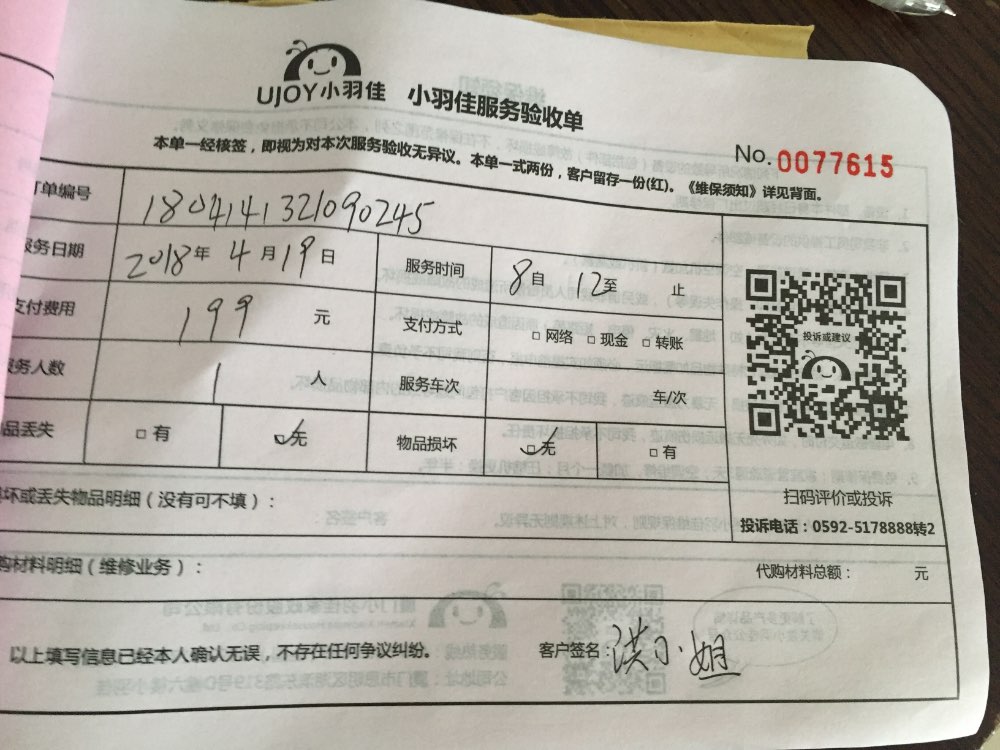 UJOY小羽佳 小羽佳服务验收单
本单一经核签，即视为对本次服务验收无异议。本单一式两份，客户留存一份(红)。《维保须知》详见背面。
No. 0077615
订单编号 1804141321090245
服务日期 2018年 4月19日 服务时间 8自 12至 止
支付费用 199 元 支付方式 □ 网络 □ 现金 □ 转账
服务人数 1 人 服务车次 车/次
品丢失 □ 有 □ 无 物品损坏 □ 无 □ 有
投诉或建议
扫码评价或投诉
投诉电话：0592-5178888转2
坏或丢失物品明细（没有可不填）：
购材料明细（维修业务）： 代购材料总额： 元
以上填写信息已经本人确认无误，不存在任何争议纠纷。 客户签名：洪小姐